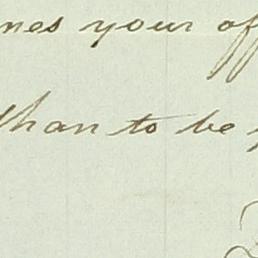 mes your off
than to be